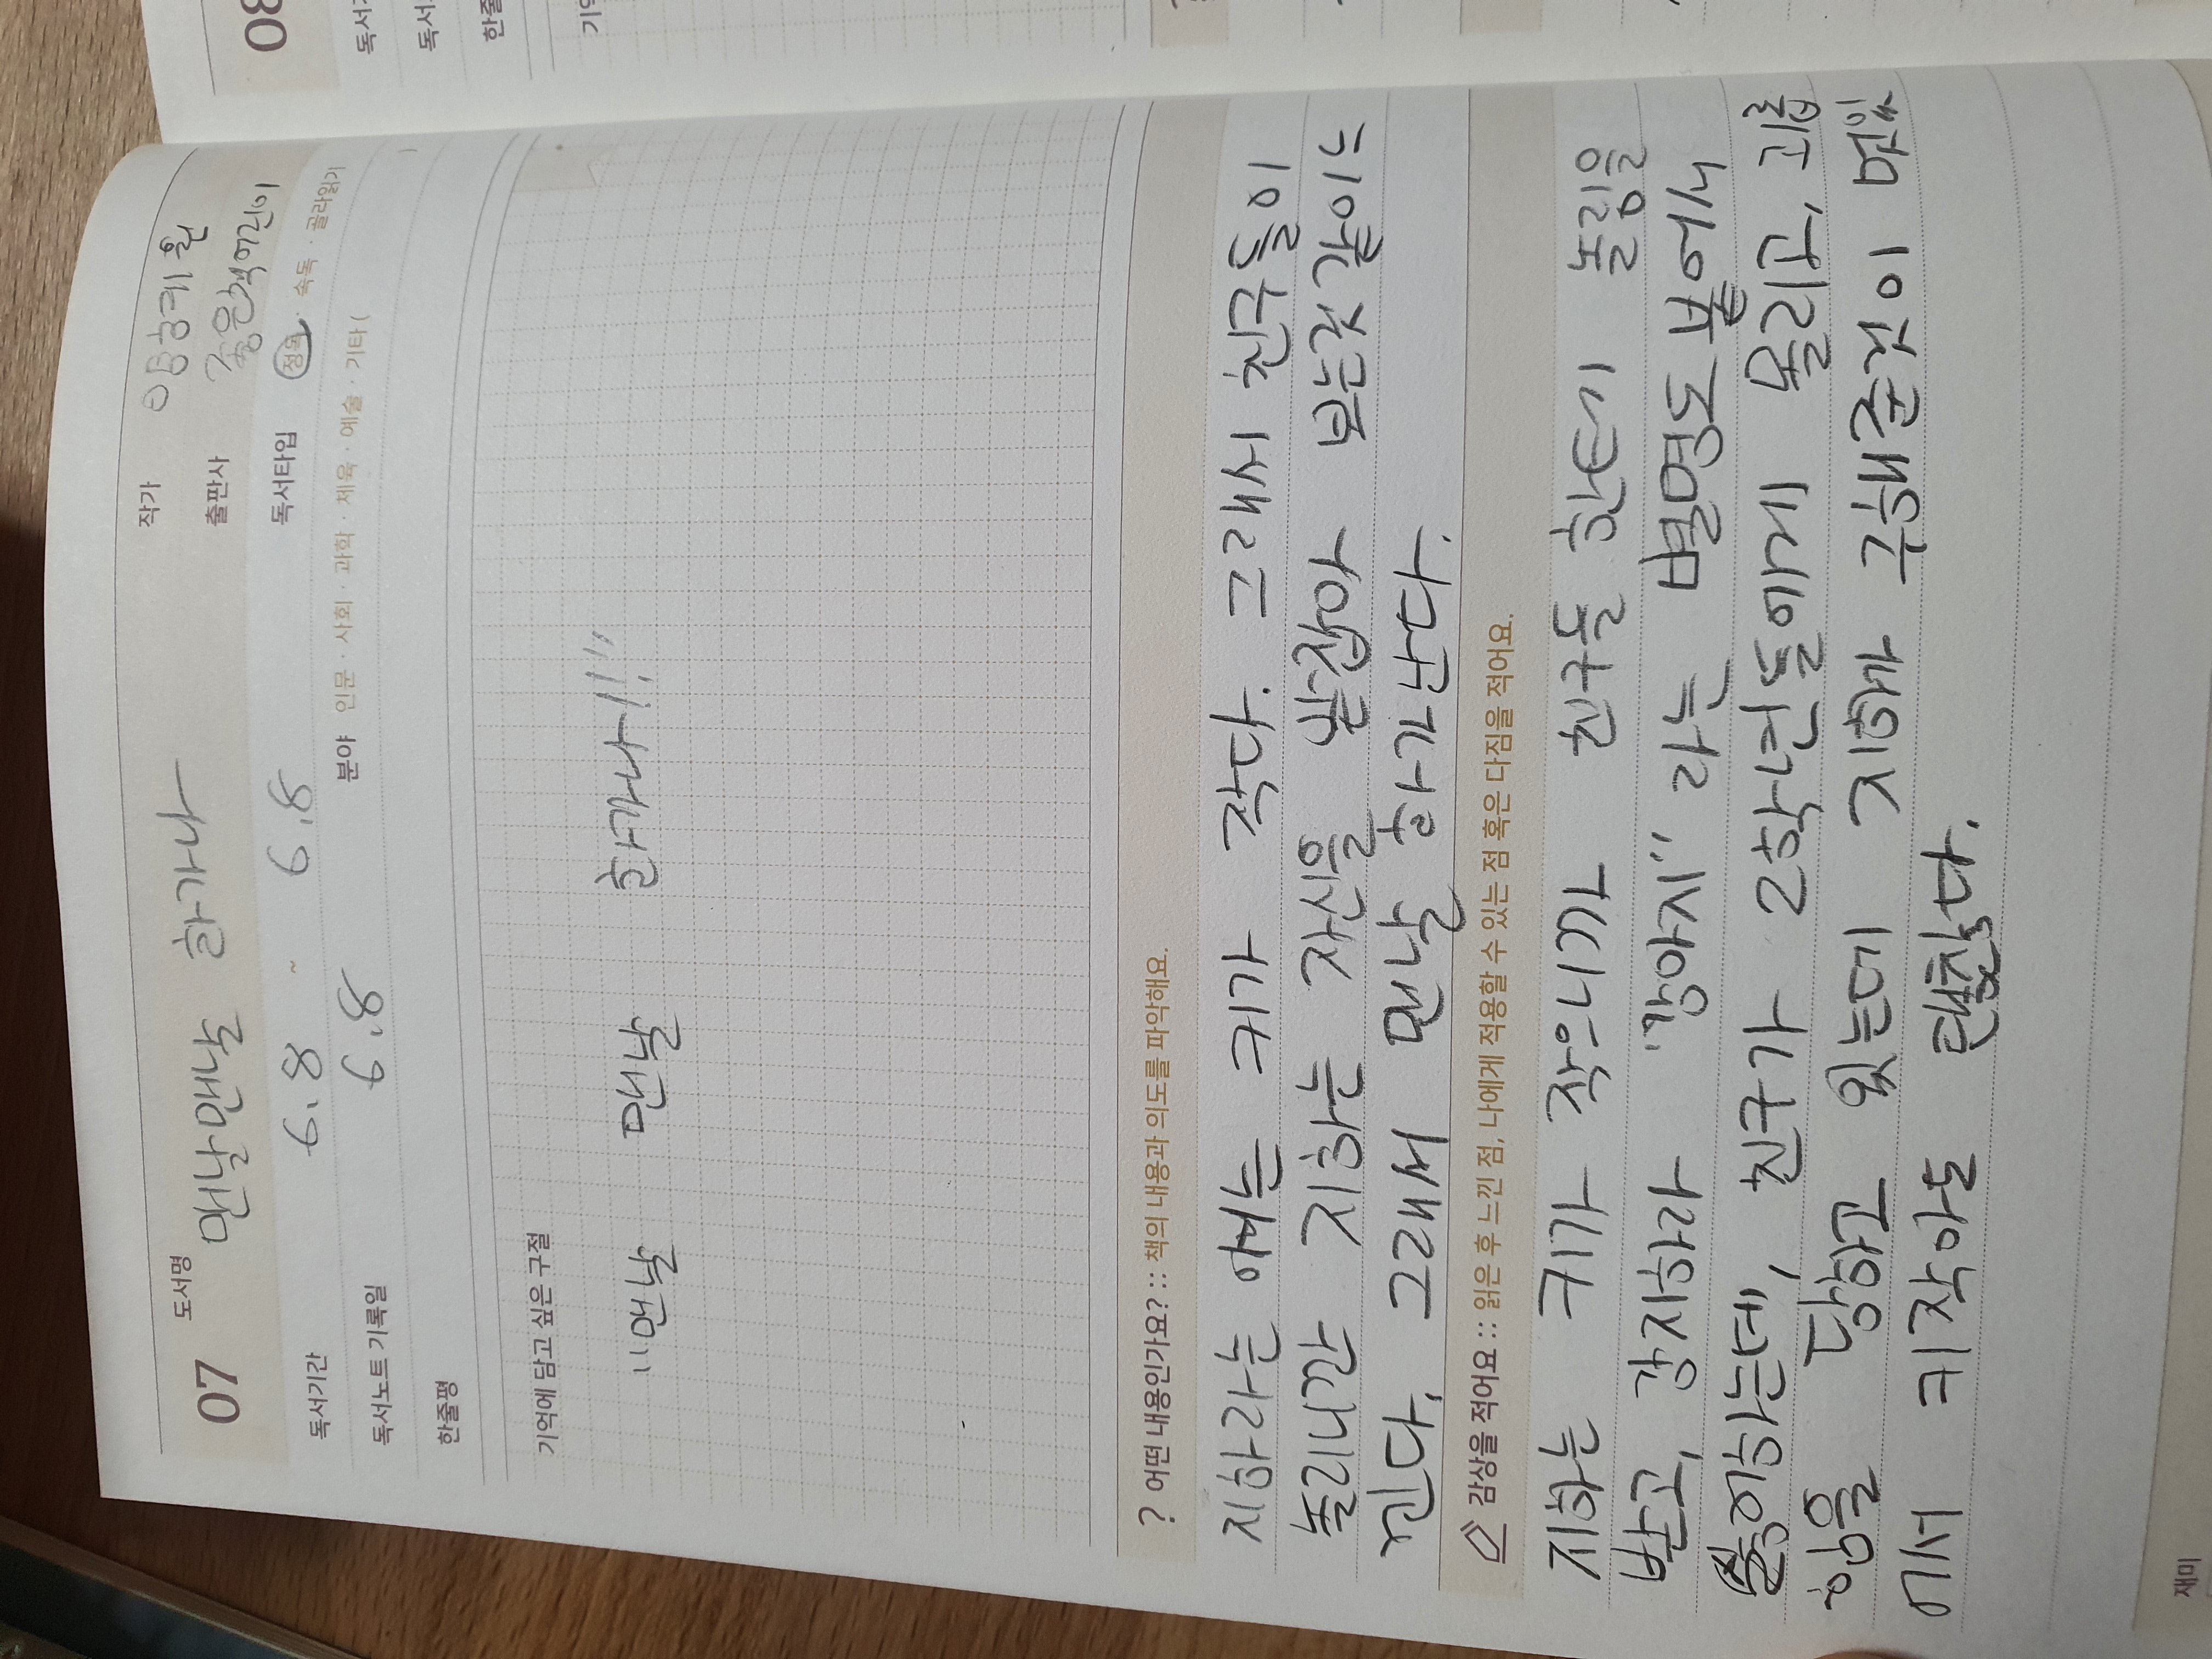 07 도서명 맨날맨날 하가나
작가 양혜원
출판사 좋은책어린이
독서기간 6.8 ~ 6.8
독서타입 정독 · 속독 · 골라읽기
독서노트 기록일 6.8
분야 인문 · 사회 · 과학 · 체육 · 예술 · 기타 ( )
한줄평
기억에 담고 싶은 구절
"맨날 맨날 하가나!!"
? 어떤 내용인가요? :: 책의 내용과 의도를 파악해요.
지하라는 애는 키가 작다. 그래서 친구들이
놀리니깐 지하는 자신을 받잡아 보는것 같이느
낀다. 그래서 맨날 하가난다.
감상을 적어요 :: 읽은 후 느낀 점, 나에게 적용할 수 있는 점 혹은 다짐을 적어요.
지하는 키가 작으니까 친구들 한테 놀림을
받고, 강지하라 "강아지" 라는 별명도 붙에서
싫어하는데, 친구가 2학년들에게 몰리고, 괴롭
힘을 당하고 있는데 지하가 구해준것이 멋있
에서 키작아도
08
재미